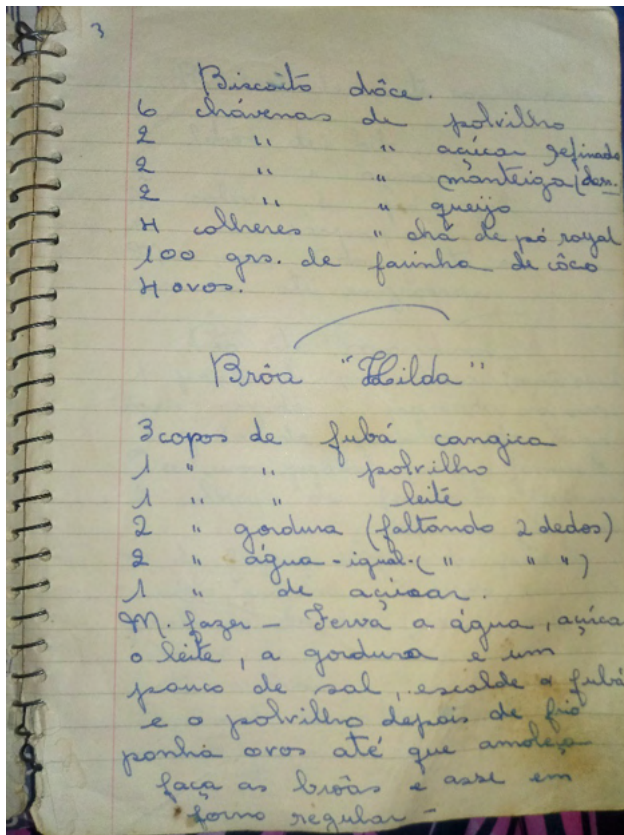 3
Biscoito dôce.
6 chávenas de polvilho
2 " " açúcar refinado
2 " " manteiga (derr.
2 " " queijo
4 colheres " chá de pó royal
100 grs. de farinha de côco
4 ovos.
Brôa "Hilda"
3 copos de fubá cangica
1 " " polvilho
1 " " leite
2 " gordura (faltando 2 dedos)
2 " água - igual - ( " " " )
1 " de açúcar.
M. fazer - Ferva a água, açúca
o leite, a gordura e um
pouco de sal, escalde o fubá
e o polvilho depois de frio
ponha ovos até que amoleça
faça as brôas e asse em
forno regular -